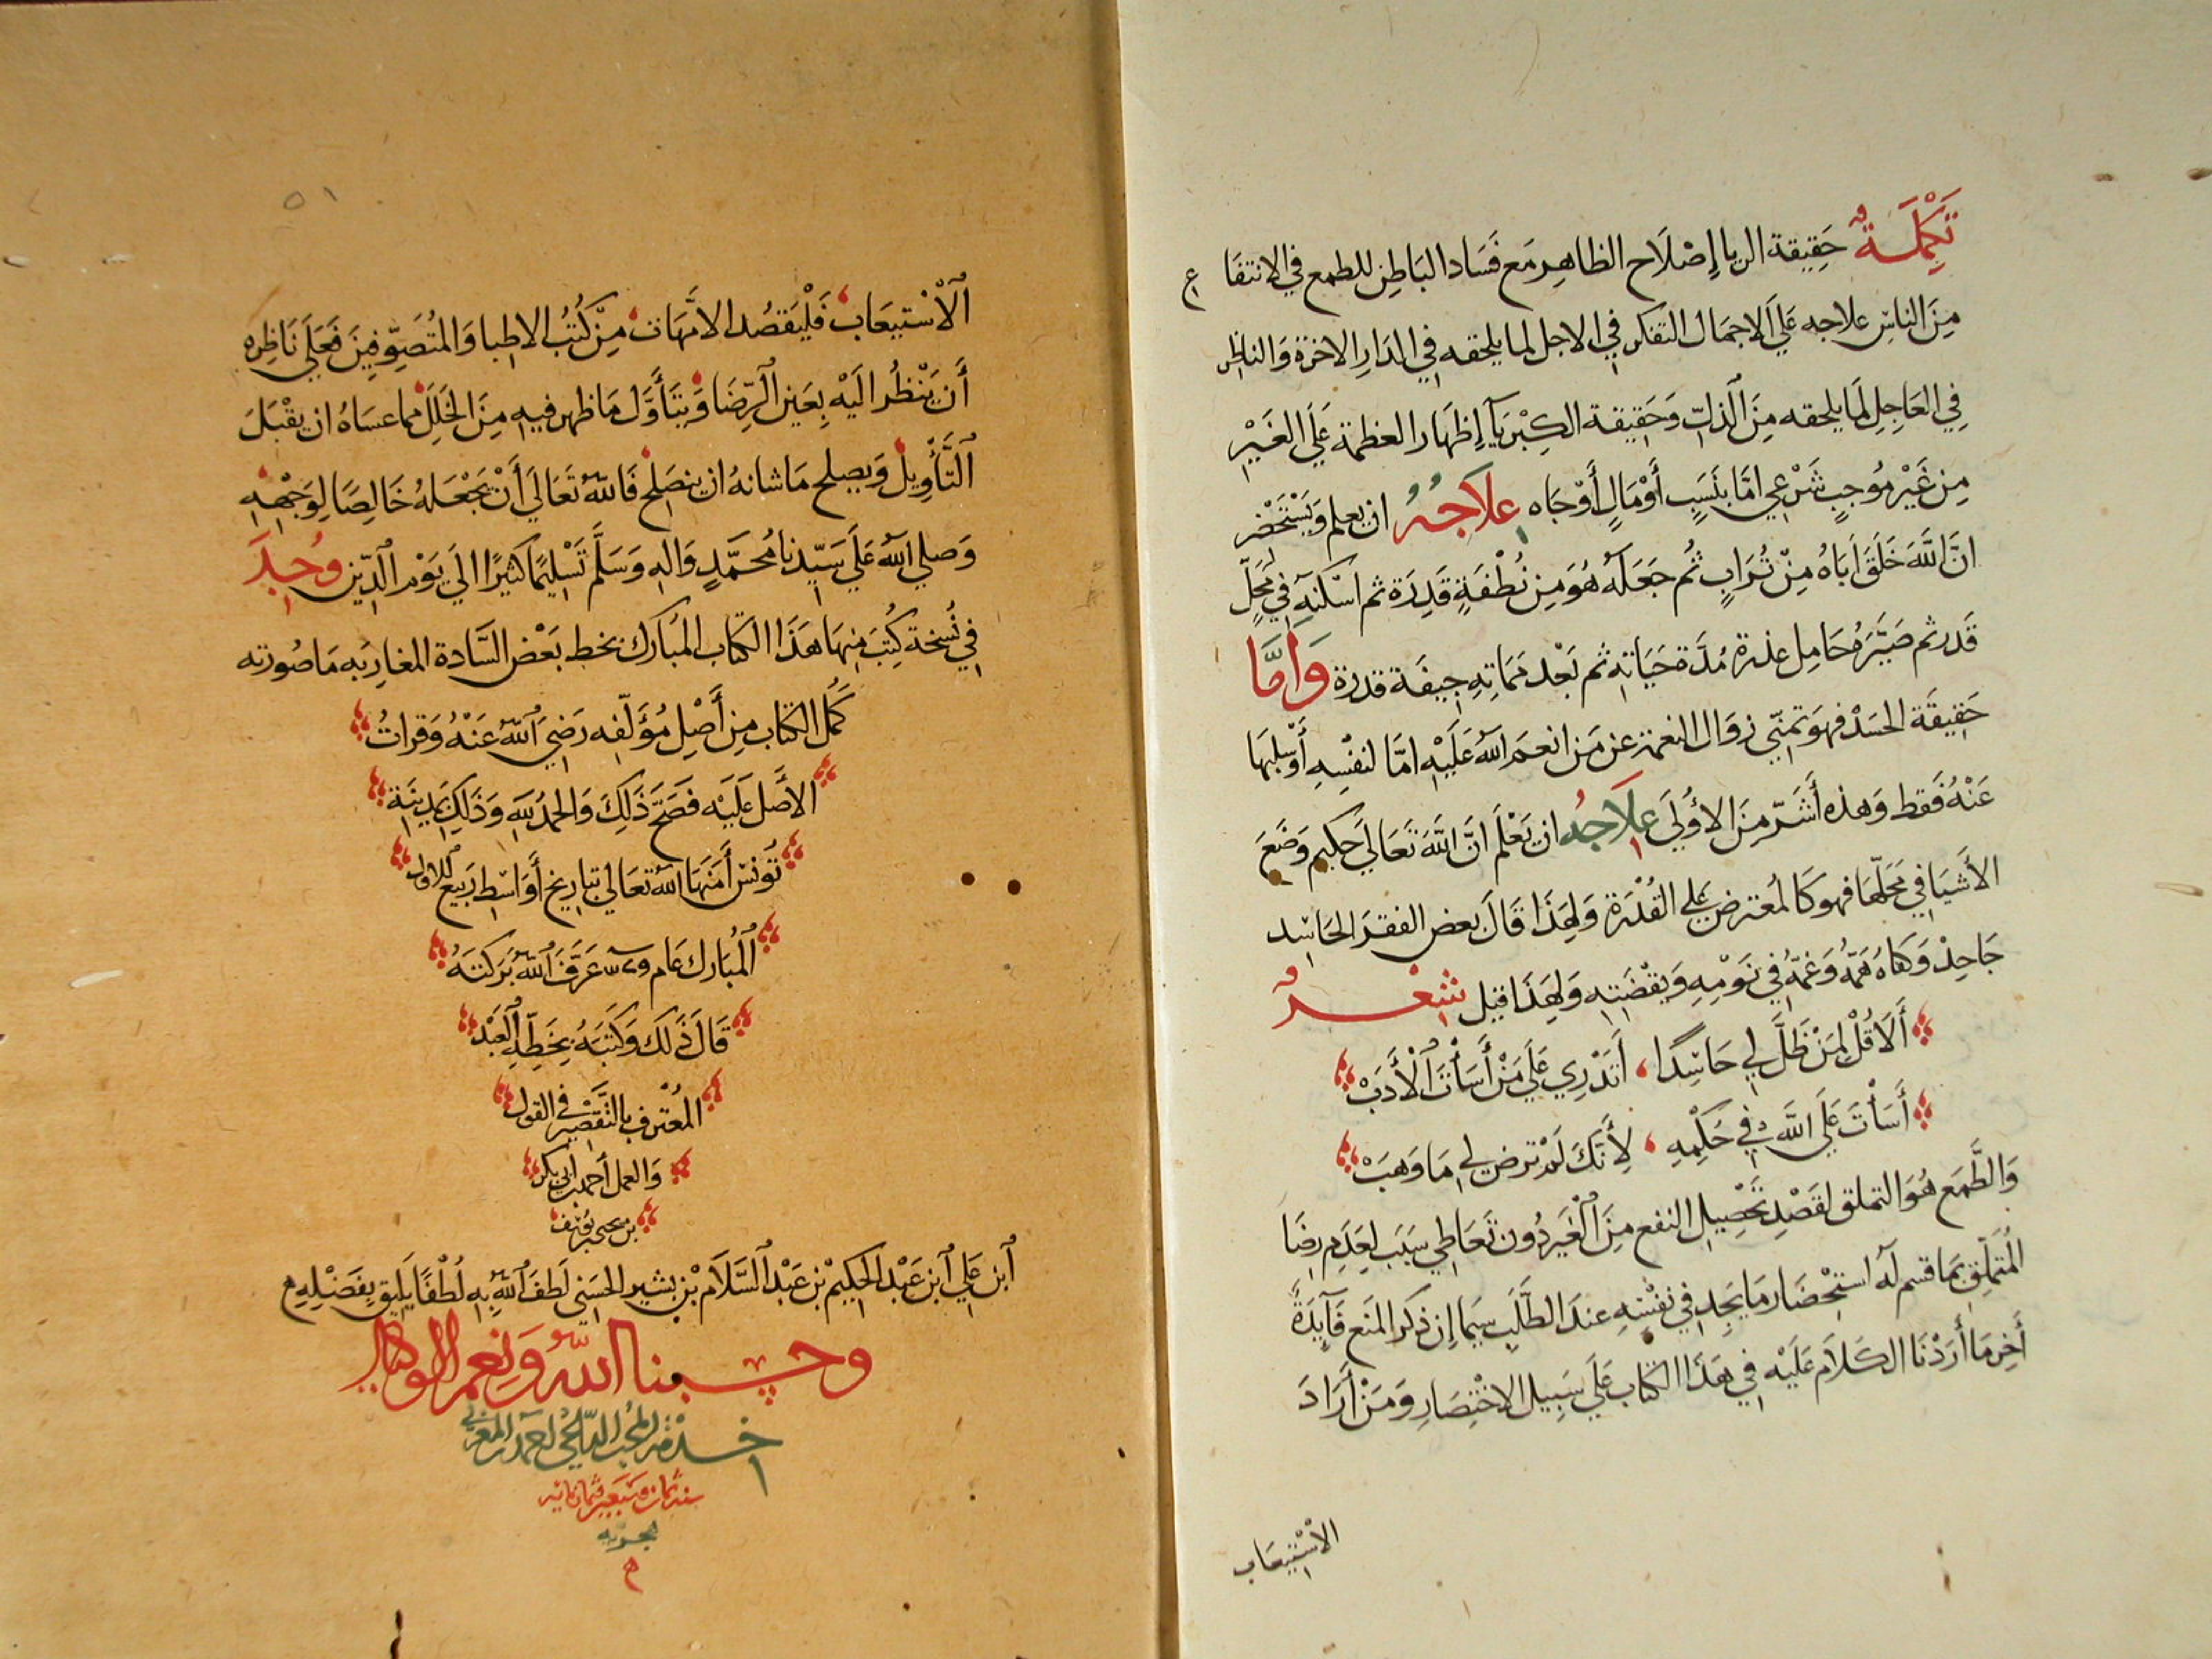 تَكْمِلَةٌ حَقِيقة الريا إِصْلَاح الظاهِر مَع فَسَاد البَاطِن للطمع في الانتفَاع
مِنَ الناسِ علاجه عَلَى الاجمَال التفكر في الاجل لما يلحقه في الدَارِ الاخرة وَالناظر
فِي العَاجِلِ لمَا يلحقه مِنَ الذلّ وَحَقِيقة الكِبْرِيَآ إِظهَار العظمة عَلَى الغَيْرِ
مِن غَيْر مُوجِبٍ شَرْعي امَّا بنَسَبٍ أَوْ مَالٍ أَوْ جَاه عِلاَجُهُ ان يعلم وَيَسْتَحْضر
انَّ اللَّهَ خَلَقَ اَبَاهُ مِنْ تُرَابٍ ثُم جَعَلَهُ هُوَ مِن نُطْفَةٍ قَذِرَة ثم اسْكنَه في مَحَلّ
قَذر ثم صَيَّرَهُ حَامِل عذرة مُدَّة حَيَاتِهِ ثم بَعْد مَمَاتِهِ جِيفَة قذرة وَأَمَّا
حَقِيقَة الحَسَدْ فهوَ تمنّي زوَال النعمة عن مَن انعمَ اللَّه عَلَيْهِ امَّا لنفْسِهِ أَوْ سلبهَا
عَنْهُ فَقط وَهذه أَشَرّ مِنَ الأُولَى عِلَاجُه ان يَعْلَمَ انَّ اللَّهَ تَعَالَى حَكيم وَضَعَ
الأَشيَا في مَحَلّهَا فهو كَالمُعْترض عَلى القُدْرَة وَلِهَذَا قَالَ بعض الفقرَا الحَاسِد
جَاحِدْ وَكفاهُ هَمّهُ وَغمّهُ في نَوْمِهِ وَيقْضَتِهِ وَلِهَذَا قيل شِعْرٌ
أَلَا قُلْ لِمَنْ ظَلَّ لِي حَاسِدًا، أَتَدْرِي عَلَى مَنْ أَسَأْتَ الْأَدَبْ
أَسَأْتَ عَلَى اللَّهِ في حُكْمِهِ، لِأَنَّكَ لَمْ ترضَ لي مَا وَهَبْ
وَالطَّمَع هُوَ التملق لقَصْدِ تَحْصِيلِ النفع مِنَ الْغَيرِ دُون تَعَاطِي سَبَب لعَدَمِ رِضَا
المُتَمَلّقِ بمَا قسم لَه استحْضَار مَا يَجِد في نفْسِهِ عندَ الطَّلَب سِيمَا إن ذكر المنَع فَآيدَةً
أَخِر مَا أَرَدْنَا الكَلَامَ عَلَيْهِ في هَذَا الكتَاب عَلَى سَبِيل الاخْتِصَارِ وَمَنْ أَرَادَ
الاسْتيعَاب
٥١
الْاسْتيعَاب فَلْيَقصُد الامّهَات مِن كُتُب الاطِبا وَالمُتَصَوّفِينَ فَعَلَى نَاظِره
أَن يَنْظُرَ الَيْهِ بِعَين الرّضَا وَيَتَأَوَّل مَا ظهر فيه مِنَ الخَلَل مما عسَاهُ ان يقْبَلَ
التَّأْوِيل وَيصلح مَا شانهُ ان ينصَلح فَاللَّهُ تَعَالَى أَنْ يَجْعَلهُ خَالِصًا لِوَجْهِهِ
وَصلى اللَّه عَلَى سَيّدنا مُحمَّدٍ وَالِهِ وَسَلَّم تَسْلِيمًا كثيرًا الَي يَوْم الدِّين وُجِدَ
في نُسخة كُتِبَ مِنهَا هَذَا الكتَاب المُبَارك بخط بَعْض السَّادة المغارِبَه مَا صُورته
كَمُل الكتَاب مِن أَصْلِ مُؤَلّفه رَضِيَ اللَّهُ عَنْهُ وَقَرأتُ
الأَصْل عَلَيْه فصَحّ ذَلِكَ وَالحَمْدُ للَّهِ وَذَلِكَ بمَدِينَة
تُونسْ أَمَنَهَا اللَّه تعَالي بتاريخ أَوَاسِط رَبيع الاول
المُبَارك عَام عَرَّفَ اللَّهُ بَرَكَتَهُ
قَالَ ذَلك وَكَتَبَهُ بِخَطِّهِ العَبْد
المُعْترف بالتَّقْصير في القول
وَالعمل أحمد بن أبي بكر
بن يُوسُف
ابن عَلي ابن عَبْد الحَكِيمْ بن عَبْد السَّلَام بْن بشير الحَسَني لَطفَ اللَّهُ بِهِ لُطْفًا يَليق بِفَضْلِهِ م
وحسبنا اللَّه وَنِعم الوكيل
المغربي
سنة ثمان وسبعين وثمانمائه
هجريه
م